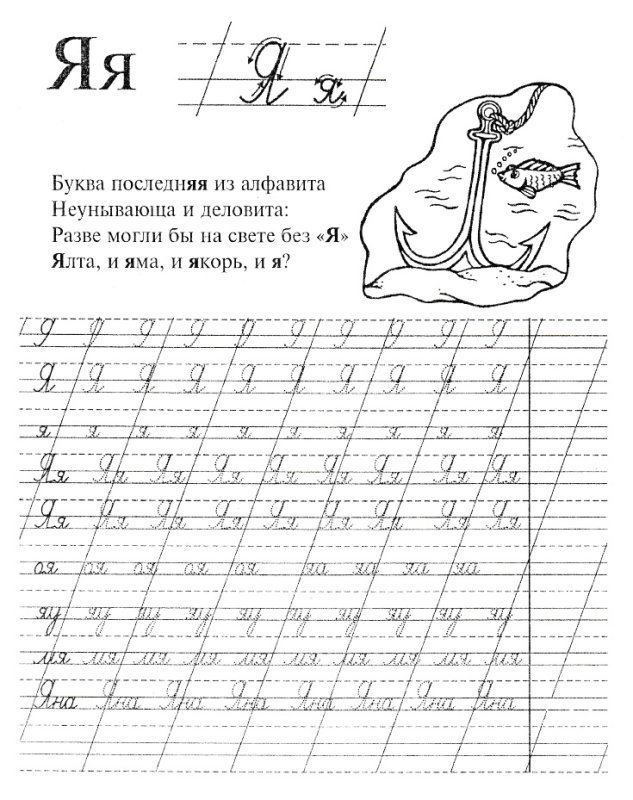 Яя Я я
Буква последняя из алфавита
Неунывающа и деловита:
Разве могли бы на свете без «Я»
Ялта, и яма, и якорь, и я?
Я Я Я Я Я Я Я Я Я Я
я я я я я я я я я я
Яя Яя Яя Яя Яя Яя Яя Яя Яя
Яя Яя Яя Яя Яя Яя Яя Яя Яя
оя оя оя оя оя яа яа яа яа
яу яу яу яу яу яу яу яу яу яу
мя мя мя мя мя мя мя мя мя мя
Яна Яна Яна Яна Яна Яна Яна Яна